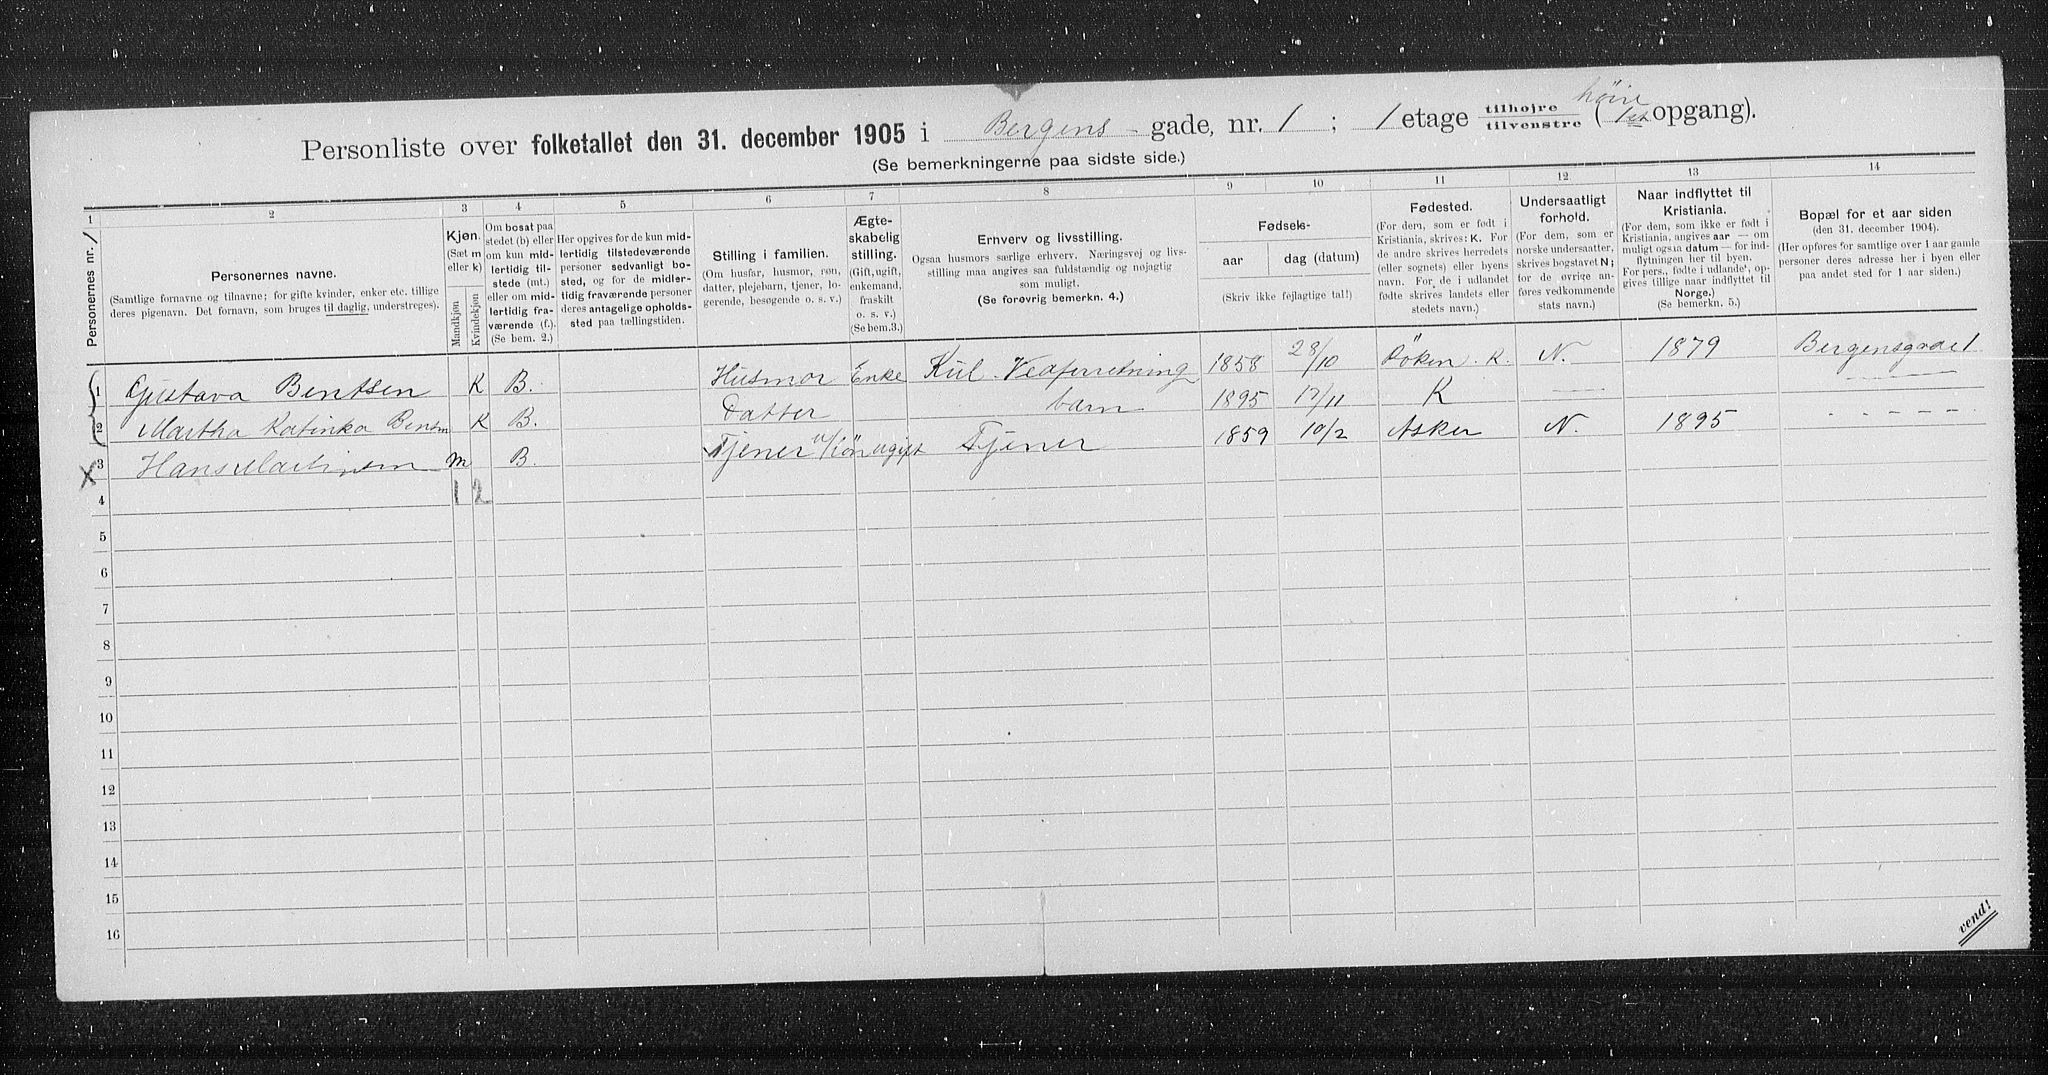 Personliste over folketallet den 31. december 1905 i Bergens-gade, nr. 1 ; 1 etage tilhøjre tilvenstre ( høire 1ste opgang).
(Se bemerkningerne paa sidste side.)
1 2 3 4 5 6 7 8 9 10 11 12 13 14
Personernes nr. /
Personernes navne.
(Samtlige fornavne og tilnavne; for gifte kvinder, enker etc. tillige
deres pigenavn. Det fornavn, som bruges til daglig, understreges).
Kjøn.
(Sæt m
eller k)
Mandkjøn
Kvindekjøn
Om bosat paa
stedet (b) eller
om kun mid-
lertidig til-
stede (mt.)
eller om mid-
lertidig fra-
værende (f.).
(Se bem. 2.)
Her opgives for de kun mid-
lertidig tilstedeværende
personer sedvanlig bo-
sted, og for de midler-
tidig fraværende personer
deres antagelige opholds-
sted paa tællingstiden.
Stilling i familien.
(Om husfar, husmor, søn,
datter, plejebarn, tjener, lo-
gerende, besøgende o. s. v.)
Ægte-
skabelig
stilling.
(Gift, ugift,
enkemand,
fraskilt
o. s. v.)
(Se bem.3.)
Erhverv og livsstilling.
Ogsaa husmors særlige erhverv. Næringsvej og livs-
stilling maa angives saa fuldstændig og nøjagtig
som muligt.
(Se forøvrig bemerkn. 4.)
Fødsels-
aar
dag (datum)
(Skriv ikke fejlagtige tal!)
Fødested.
(For dem, som er født i
Kristiania, skrives: K. For
de andre skrives herredets
(eller sognets) eller byens
navn. For de i udlandet
fødte skrives landets eller
stedets navn.)
Undersaatligt
forhold.
(For dem, som er
norske undersaatter,
skrives bogstavet N;
for de øvrige an-
føres vedkommende
stats navn.)
Naar indflyttet til
Kristiania.
(For dem, som ikke er født i
Kristiania, angives aar — om
muligt ogsaa datum — for ind-
flytningen her til byen.
For pers., fødte i udlandet, op-
gives tillige naar indflyttet til
Norge.)
(Se bemerkn. 5.)
Bopæl for et aar siden
(den 31. december 1904).
(Her opføres for samtlige over 1 aar gamle
personer deres adresse her i byen eller
paa andet sted for 1 aar siden.)
1 Gustava Bentsen K B. Husmor Enke Kul. Vedforretning 1858 28/10 Röken. K. N. 1879 Bergensgade 1
2 Martha Katinka Bentsen K B. Datter barn 1895 17/11 K — — — — — —
3 Hans Martinsen m B. Tjener u/lön ugift Tjener 1859 10/2 Asker N. 1895 — — — — —
4 1 2
5
6
7
8
9
10
11
12
13
14
15
16
vend!